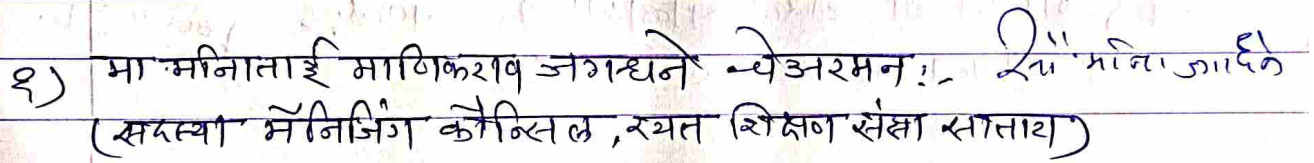 १) मा मनिाताई माणिकराव जगधने चेअरमन :-
(सदस्या मॅनिजिंग कौन्सिल, रयत शिक्षण संस्था सातारा)